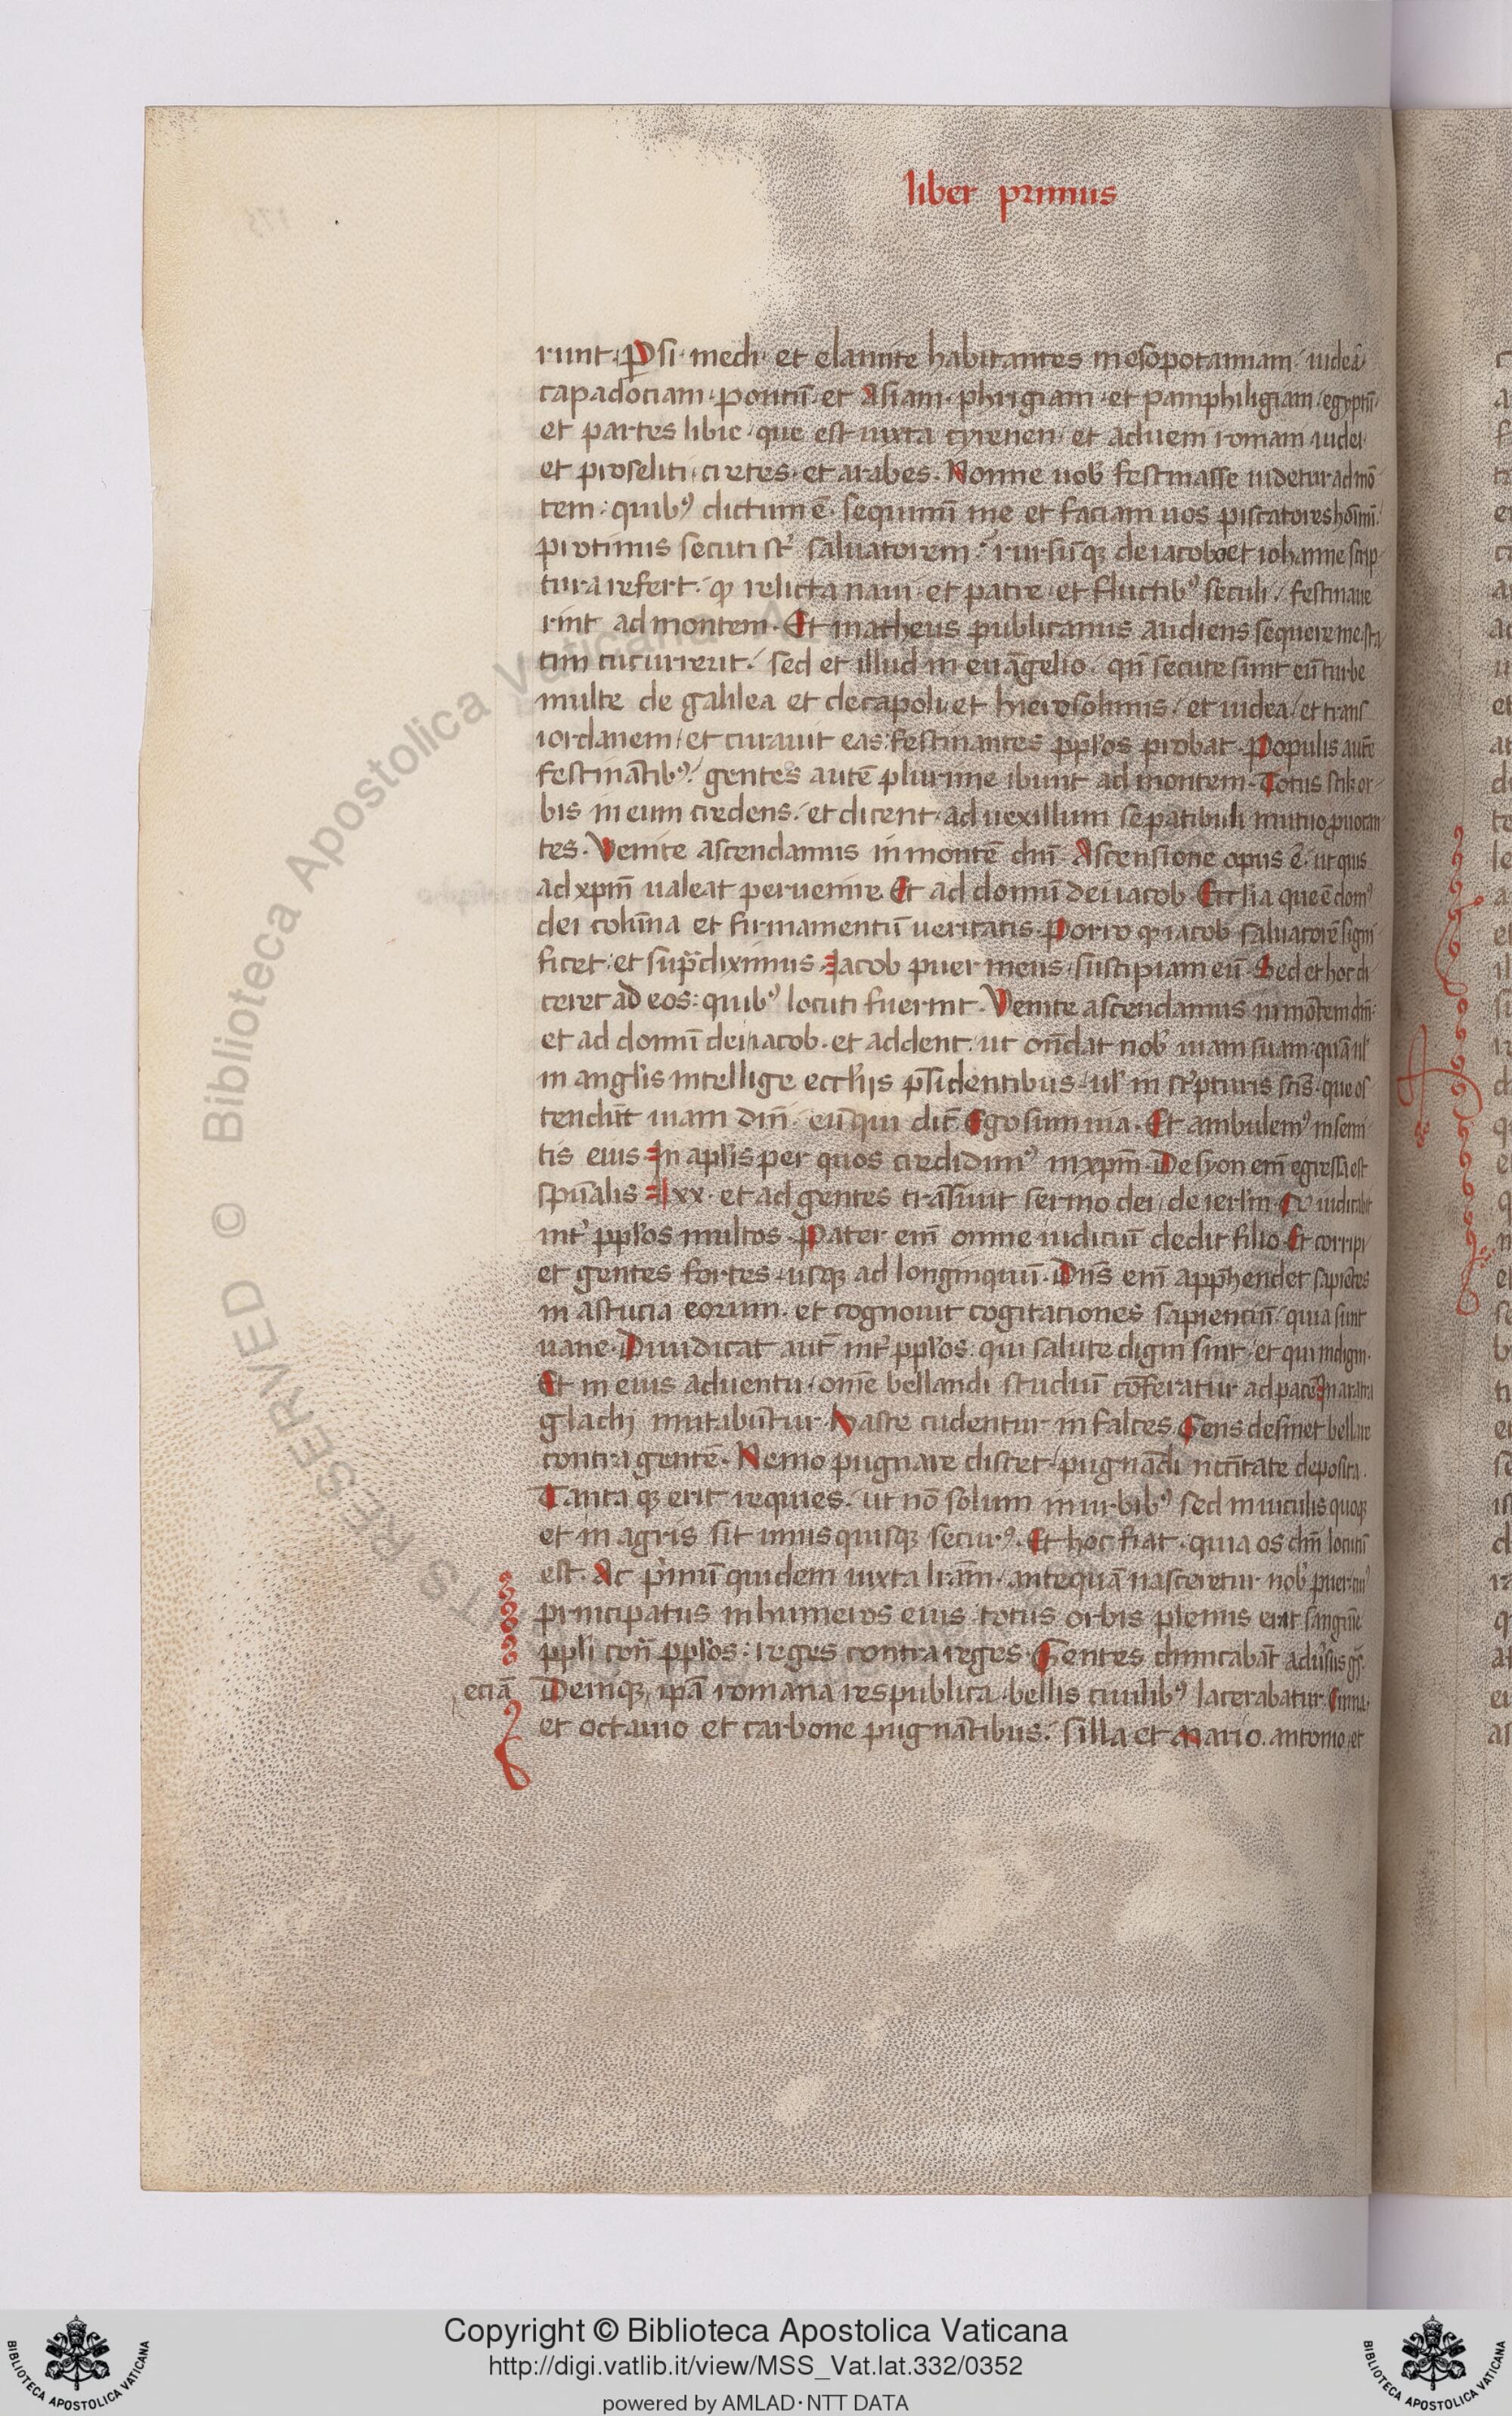 liber primus
runt. Psi. medi. et elamite habitantes mesopotamiam. iudeā.
capadociam. pontū. et Asiam. phrigiam. et pamphiligiam. egyptū.
et partes libie. que est iuxta cyrenen. et aduem romam. iudei.
et proseliti. cretes. et arabes. Nonne uob festinasse uidetur ad mō
tem: quibꝰ dictum ē. sequimī me et faciam uos piscatores hoīm.
protinus secuti st̄ saluatorem. rursūqꝫ de iacobo et iohanne scrip
tura refert. ꝙ relicta naui. et patre. et fluctibꝰ seculi. festinaue
rint ad montem. Et matheus publicanus audiens sequere me. sta
tim cucurrerit. sed et illud in euāgelio. qn̄ secute sunt eū turbe
multe de galilea et decapoli. et hierosolimis. et iudea. et trans
iordanem. et curauit eas. festinantes pplo̅s probat. Populis autē
festinātibꝰ. gentes autē plurime ibunt ad montem. Totus scilꝫ or
bis in eum credens. et dicent. ad uexillum se patibuli mutuo ꝓuocan
tes. Venite ascendamus in montē dn̄i. Ascensione opus ē. ut quis
ad xpm̄ ualeat peruenire. Et ad domū dei iacob. Eccl̄ia que ē domꝰ
dei colūna et firmamentū ueritatis. Porro ꝙ iacob saluatorē signi
ficet. et sup̄ diximus. Iacob puer meus. suscipiam eū. Sed et hoc di
ceret ad eos: quibꝰ locuti fuerint. Venite ascendamus in mōtem dn̄i.
et ad domū dei iacob. et addent. ut on̄dat nob uiam suam. quā ul̄
in angl̄is intellige eccl̄ijs p̄sidentibus. ul̄ in sc̄pturis sc̄is. que os
tendūt uiam dn̄i. eūqui dic̄ Ego sum uia. Et ambulemꝰ in semi
tis eius. In apl̄is per quos credidimꝰ in xpm̄. De syon em̄ egressa est
spūalis lxx. et ad gentes trāsiuit sermo dei. de ierl̄m. Et iudicabit
int̄ pplo̅s multos. Pater em̄ omne iudiciū dedit filio. Et corripi
et gentes fortes. usqꝫ ad longinquū. Dn̄s em̄ app̄hendet sapiētes
in astucia eorum. et cognouit cogitationes sapienciū. quia sunt
uane. Diiudicat aut̄ int̄ pplo̅s. qui salute digni sint. et qui indigni.
Et in eius aduentu. om̄e bellandi studiū cōferatur ad pacē. In aratra
gladij mutabūtur. Haste cudentur in falces. Gens desinet bellare
contra gentē. Nemo pugnare discet. pugnādi nccītate deposita.
Tanta qꝫ erit requies. ut nō solum in urbibꝰ sed in uiculis quoqꝫ
et in agris sit unusquisqꝫ securꝰ. Et hoc fiat. quia os dn̄i locutū
est. Ac p̄mū quidem iuxta lr̄am. antequā nasceretur nob puer. cuiꝰ
principatus in humeros eius. totus orbis plenus erat sanguīe
ppl̄i con̄ pplo̅s. reges contra reges. Gentes dimicabāt adūsus
eciā Deniqꝫ ip̄a romana respublica. bellis ciuilibꝰ lacerabatur. Cinna.
et octauio et carbone pugnātibus. silla et Mario. antonio. et